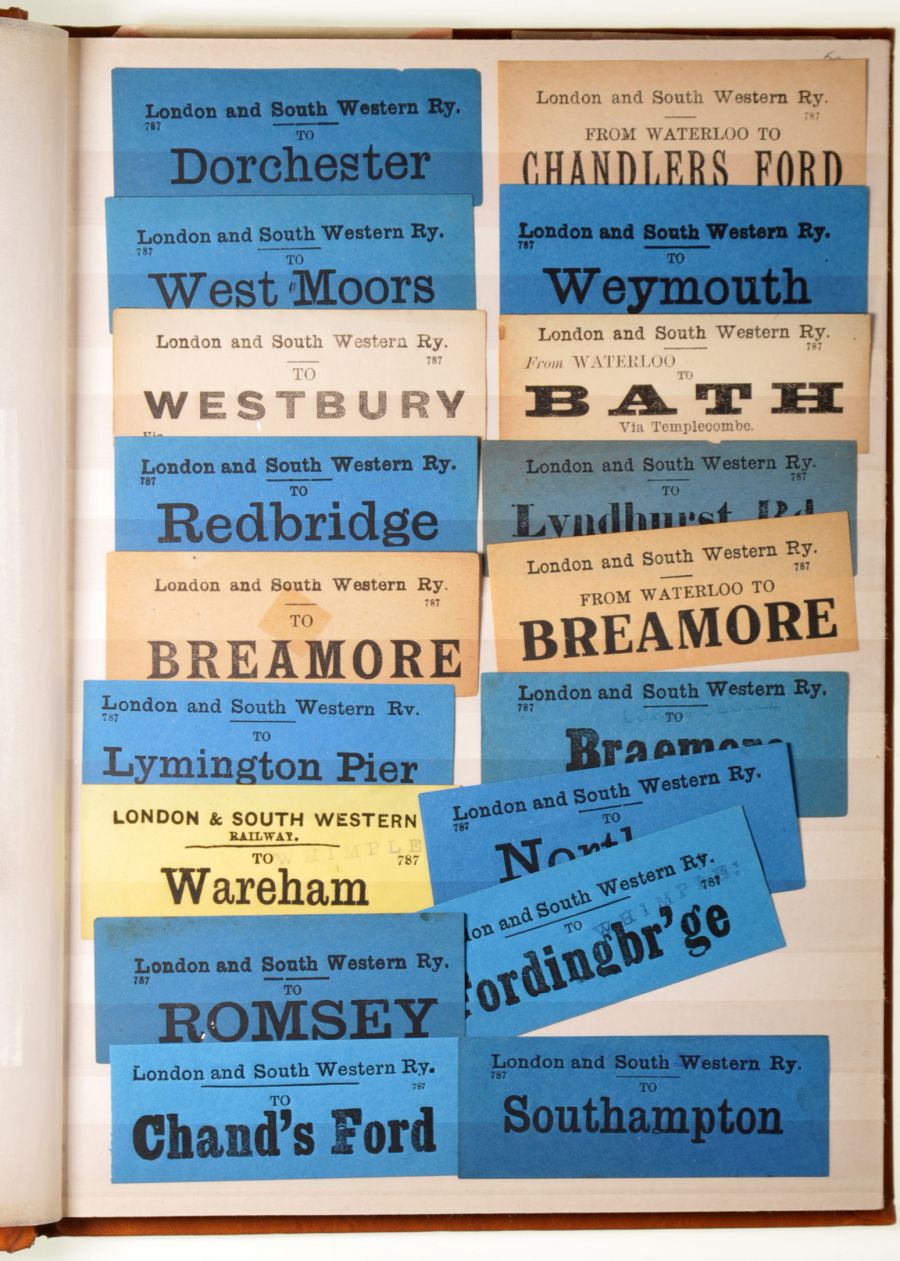 London and South Western Ry.
787
TO
Dorchester
London and South Western Ry.
787
TO
West Moors
London and South Western Ry.
787
TO
WESTBURY
Via
London and South Western Ry.
787
TO
Redbridge
London and South Western Ry.
787
TO
BREAMORE
London and South Western Ry.
787
TO
Lymington Pier
LONDON & SOUTH WESTERN
RAILWAY.
TO
WHIMPLE
787
Wareham
London and South Western Ry.
787
TO
ROMSEY
London and South Western Ry.
787
TO
Chand's Ford
London and South Western Ry.
787
FROM WATERLOO TO
CHANDLERS FORD
London and South Western Ry.
787
TO
Weymouth
London and South Western Ry.
787
From WATERLOO
TO
BATH
Via Templecombe.
London and South Western Ry.
787
TO
Lyndhurst Rd.
London and South Western Ry.
787
FROM WATERLOO TO
BREAMORE
London and South Western Ry.
787
TO
Braemore
London and South Western Ry.
787
TO
North
don and South Western Ry.
787
TO
WHIMPLE
Fordingbr'ge
London and South Western Ry.
787
TO
Southampton